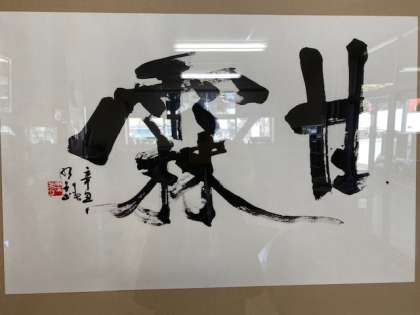 甘霖
辛丑